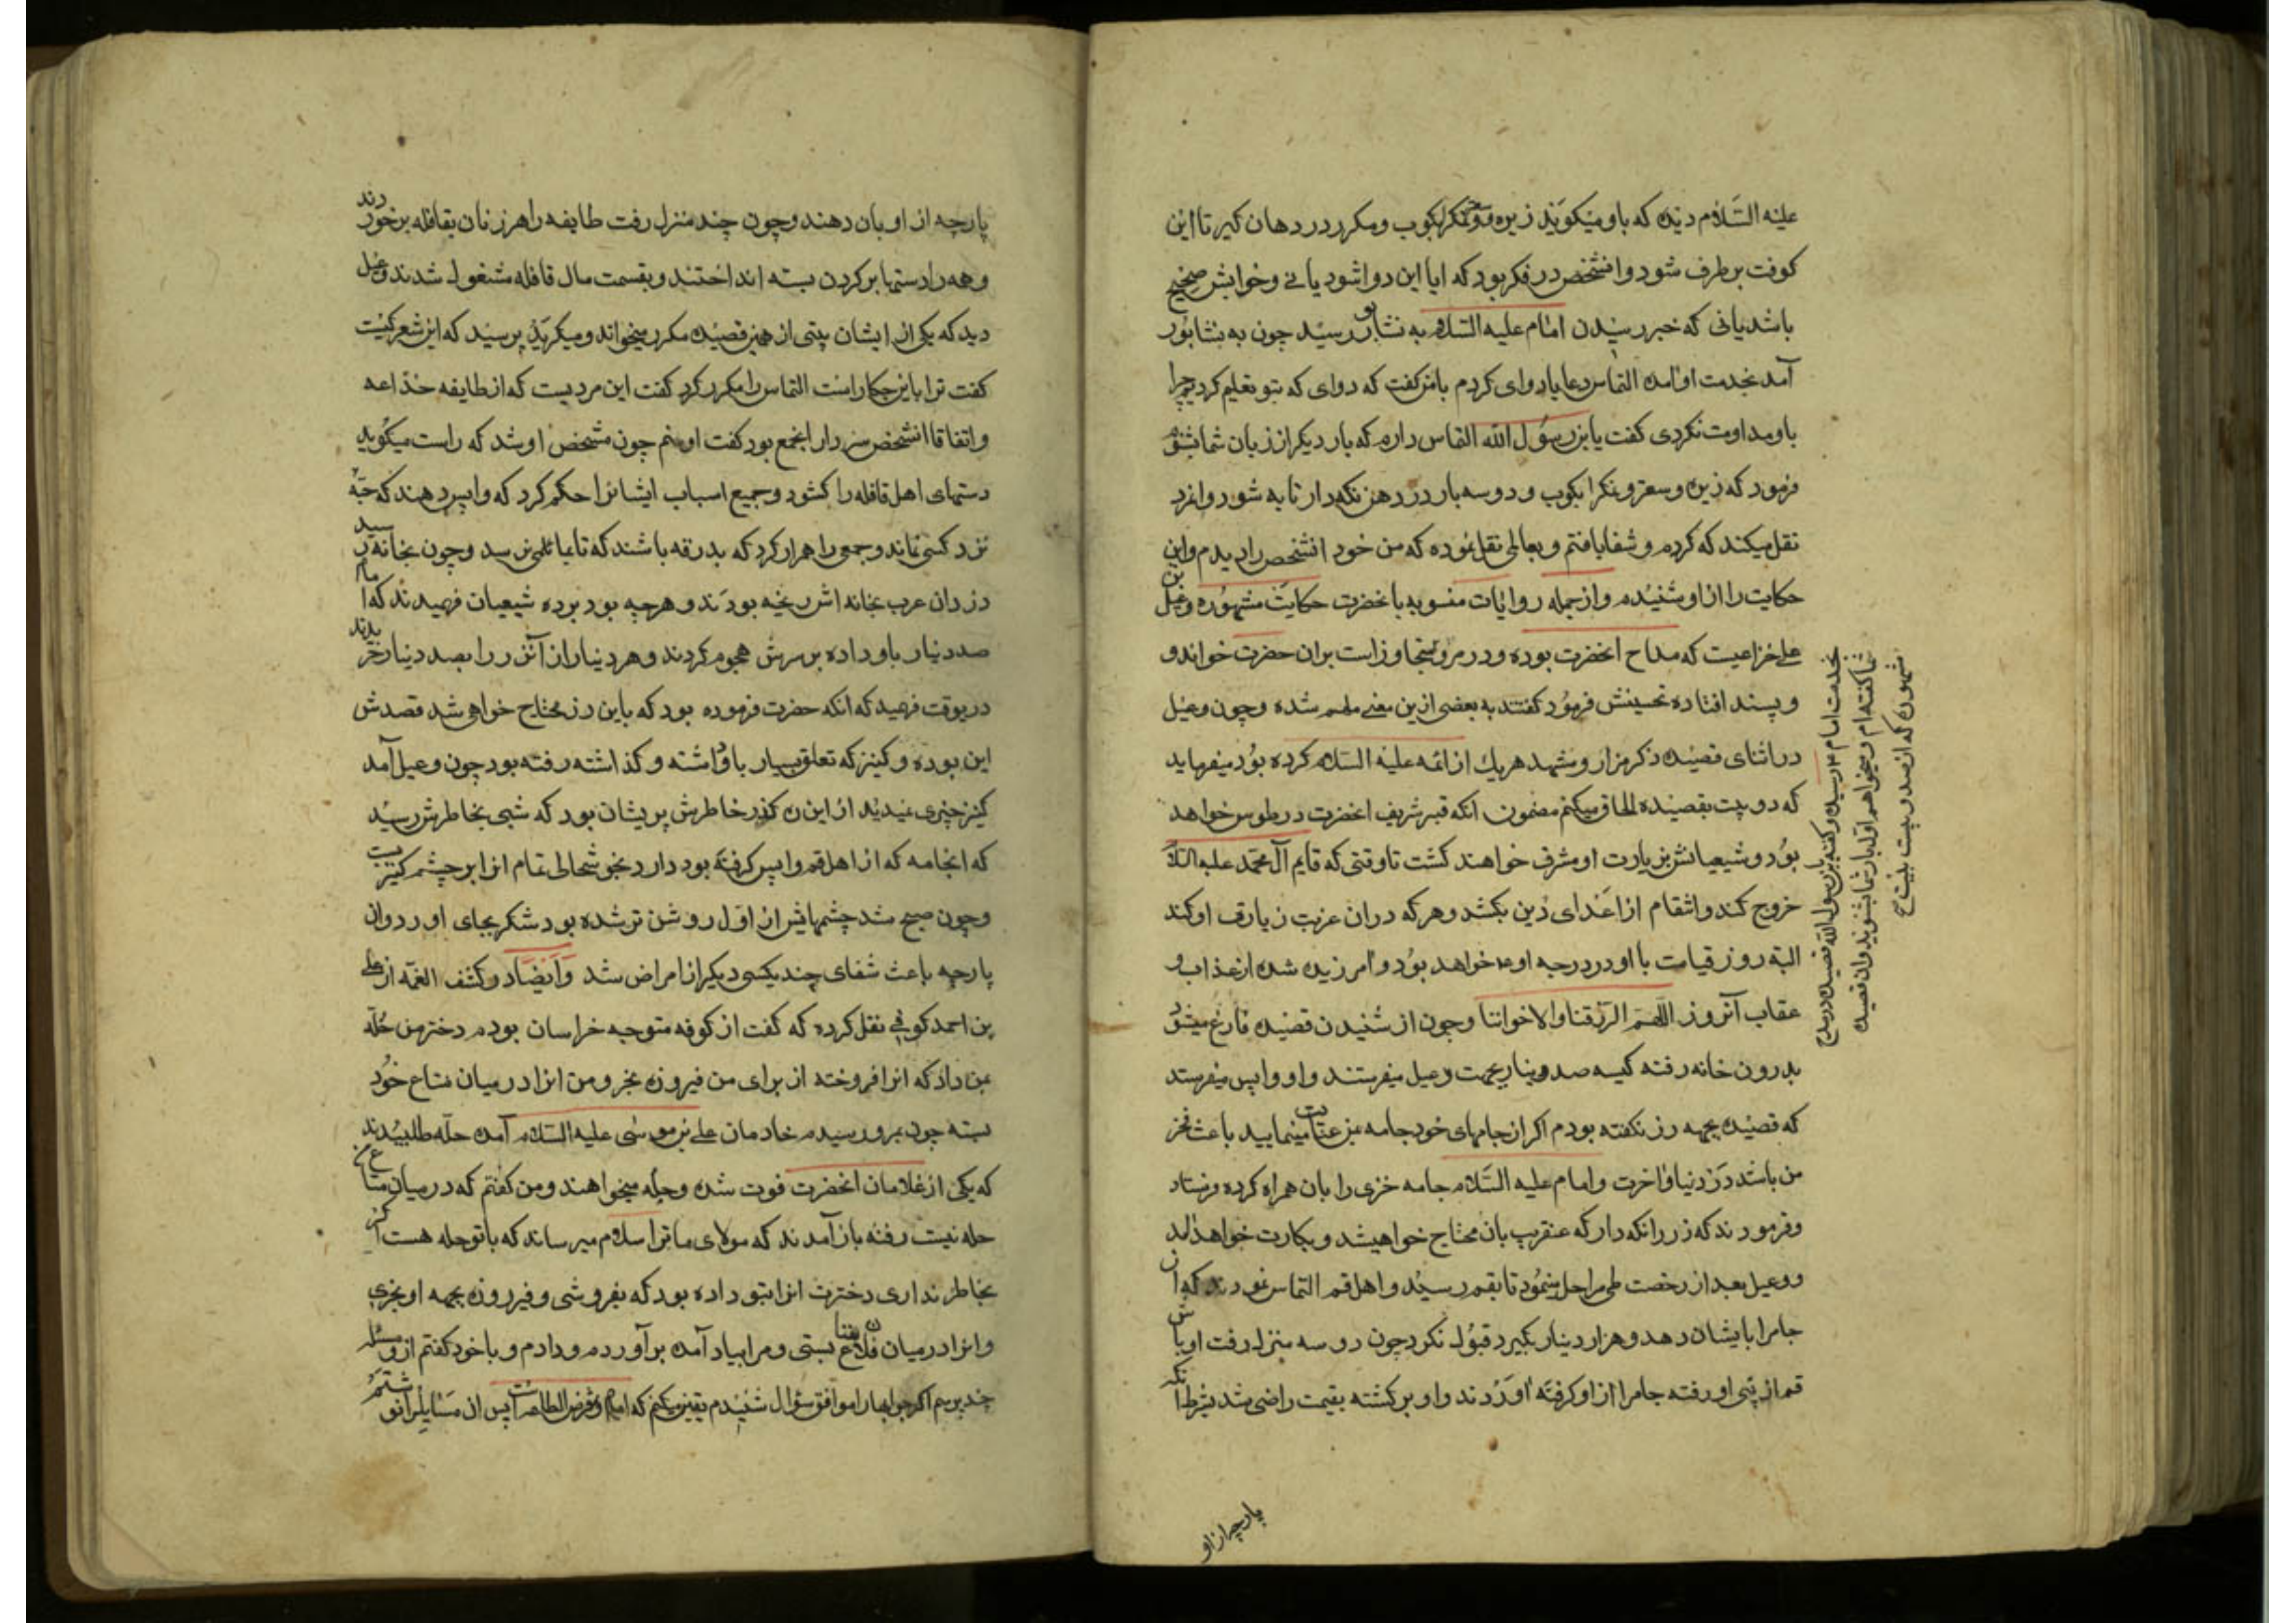 علیه السّلام دیده که باو میکویند زیره و سعتر و نمکرا بکوب و مکرر در دهان کیر تا این
کوفت برطرف شود و انشخص در فکر بود که ایا این دوا شود یا نی و خوابش صحیح
باشد یانی که خبر رسیدن امام علیه السلام به نشابور رسید چون به نشابور
آمد بخدمت او آمده التماس دعا یا دوای کردم بامن کفت که دوای که بتو تعلیم کردیم چرا
باو مداومت نکردی کفت یابن رسول الله التماس دارم که بار دیکر از زبان شما بشنوم
فرمود که زیره و سعتر و نمکرا بکوب و دو سه بار در دهن نکهدار تا به شود وانمرد
نقل میکند که کردم و شفا یافتم و نقل نموده که من خود انشخص را دیدم واین
حکایت را از او شنیدم و از جمله روایات منسوبه بانحضرت حکایت مشهوره دعبل بن
علی خزاعیست که مداح انحضرت بوده و در مرو بران حضرت خواند و
و پسند افتاده تحسینش فرمود کفتند به بعضی ازین معنی ملهم شده و چون دعبل
در اثنای قصیده ذکر مزار و مشهد هر یك از ائمه علیه السلام کرده بود میفرماید
که دو بیت بقصیده الحاق میکنم مضمون انکه قبر شریف انحضرت در طوس خواهد
بود و شیعیانش بزیارت او مشرف خواهند کشت تا وقتی که قایم آل محمد علیه السلام
خروج کند و انتقام از اعدای دین بکشد و هر که دران غربت زیارت او کند
البته روز قیامت با او در درجه او خواهد بود و امرزیده شده از عذاب و
عقاب آنروز اللهم ارزقنا و لاخواننا و چون از شنیدن قصیده فارغ میشود
بدرون خانه رفته کیسه صد دینار بجهت دعبل میفرستند و او واپس میفرستد
که قصیده بجهه زر نکفته بودم اکر از جامهای خود جامه بمن عنایت مینمایید باعث فخر
من باشد در دنیا و اخرت و امام علیه السلام جامه خزی را بان همراه کرده فرستاد
و فرمودند که زر را نکه دار که عنقریب بان محتاج خواهیشد و بکارت خواهد آمد
و دعبل بعد از رخصت طی مراحل مینمود تا بقم رسید و اهل قم التماس نمودند که ان
جامرا بایشان دهد و هزار دینار بکیرد قبول نکرد چون دو سه منزل رفت اوباش
قم از پی او رفته جامرا از او کرفته اوردند و او برکشته بقیمت راضی شد بشرط انکه
بخدمت امام رسیده و کفته یابن رسول الله قصیده در مدح
شما کفته ام و میخواهم اول بار شما بشنوید و ان قصیده
مشهوره که از صد و بیست بیت
پارچه از او
پارچه از او بان دهند و چون چند منزل رفت طایفه راهزنان بقافله برخوردند
و همه را دستها بر کردن بسته انداختند و بقسمت مال قافله مشغول شدند دعبل
دید که یکی از ایشان بیتی از همین قصیده مکرر میخواند و میکرید پرسید که این شعر کیست
کفت ترا باین چکار است التماس را مکرر کرد کفت این مردیست که از طایفه خذاعه
و اتفاقا انشخص سردار انجمع بود کفت او منم چون مشخص او شد که راست میکوید
دستهای اهل قافله را کشود و جمیع اسباب ایشانرا حکم کرد که واپس دهند که حبّه
نزد کسی نماند و جمعی را همراه کرد که بدرقه باشند که تا بمامنی رسد و چون بخانه رسید
دزدان عرب بخانه اش ریخته بودند و هر چه بود برده شیعیان فهمیدند که امام
صد دینار باو داده بر سرش هجوم کردند و هر دینار از آنزر را بصد دینار خریدند
درینوقت فهمید که انکه حضرت فرموده بود که باین زر محتاج خواهی شد قصدش
این بوده و کنیزکه تعلق بسیار باو داشته و کذاشته رفته بود چون دعبل آمد
کنیز چیزی نمیدید از این ره کذر خاطرش پریشان بود که شبی بخاطرش رسید
که انجامه که از اهل قم واپس کرفته بود دارد بخوشحالی تمام انرا بر چشم کنیز بست
و چون صبح شد چشمهایش از اول روشن تر شده بود شکر بجای اورد و ان
پارچه باعث شفای چند یکسی دیکر از امراض شد و ایضا در کشف الغمه از علی
بن احمد کوفی نقل کرده که کفت از کوفه متوجه خراسان بودم دختر من حلّه
بمن داد که انرا فروخته از برای من فیروزه بخر و من انرا در میان متاع خود
بسته چون بمرو رسیدم خادمان علی بن موسی علیه السلام آمده حله طلبیدند
که یکی از غلامان انحضرت فوت شده و حله میخواهند و من کفتم که در میان متاع من
حله نیست رفته باز آمدند که مولای ما ترا سلام میرساند که با تو حله هست اکر
بخاطر نداری دخترت انرا بتو داده بود که بفروشی و فیروزه بجهه او بخری
و انرا در میان فلان متاع بستی و مرا بیاد آمده برآوردم و دادم و با خود کفتم از و مسئله
چند پرسم اکر جوابها را موافق سؤال شنیدم یقین میکنم که امام مفرض الطاعه است پس ان مسایلرا نوشتم